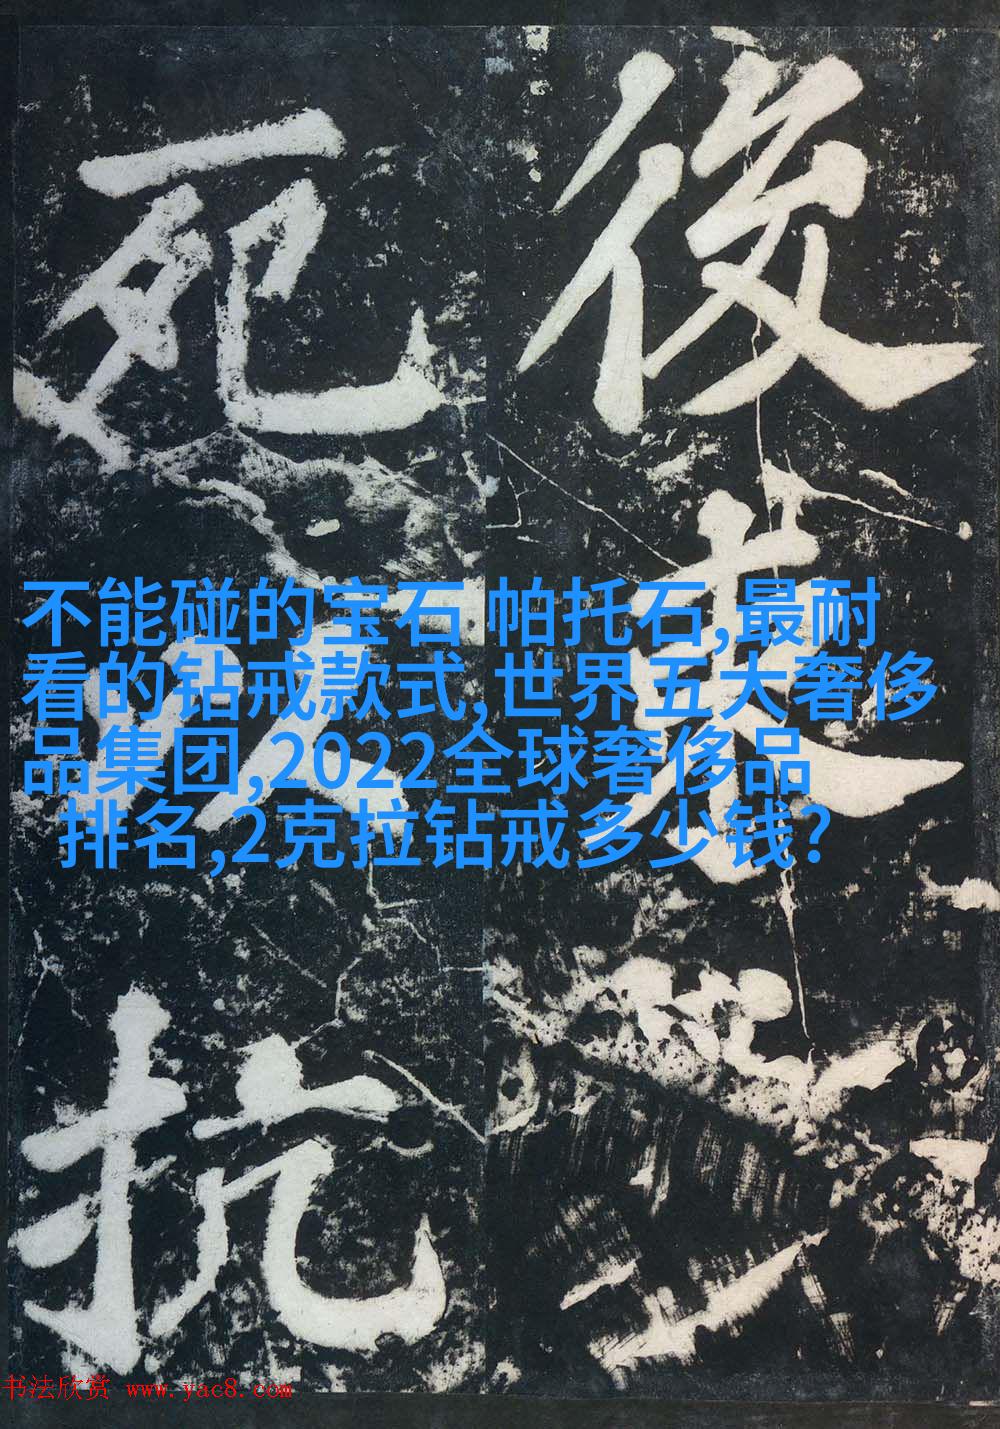 後来
死以抗
不能碰的宝石 帕托石,最耐
看的钻戒款式,世界五大奢侈
品集团,2022全球奢侈品
排名,2克拉钻戒多少钱?
书法欣赏 www.yac8.com